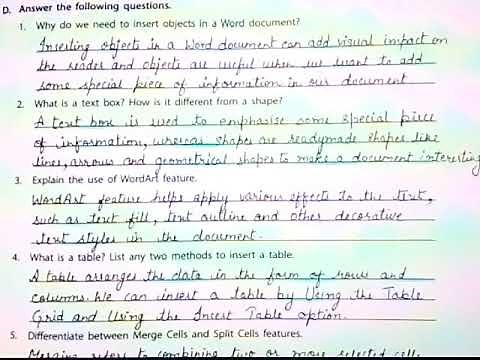 D. Answer the following questions.
1. Why do we need to insert objects in a Word document?
Inserting objects in a Word document can add visual impact on
the reader and objects are useful when we want to add
some special piece of information in our document
2. What is a text box? How is it different from a shape?
A text box is used to emphasise some special piece
of information, whereas shapes are readymade shapes like
lines, arrows and geometrical shapes to make a document interesting
3. Explain the use of WordArt feature.
WordArt feature helps apply various effects to the text,
such as text fill, text outline and other decorative
text styles in the document.
4. What is a table? List any two methods to insert a table.
A table arranges the data in the form of rows and
columns. We can insert a table by Using the Table
Grid and Using the Insert Table option.
5. Differentiate between Merge Cells and Split Cells features.
Merging refers to combining two or more selected cell